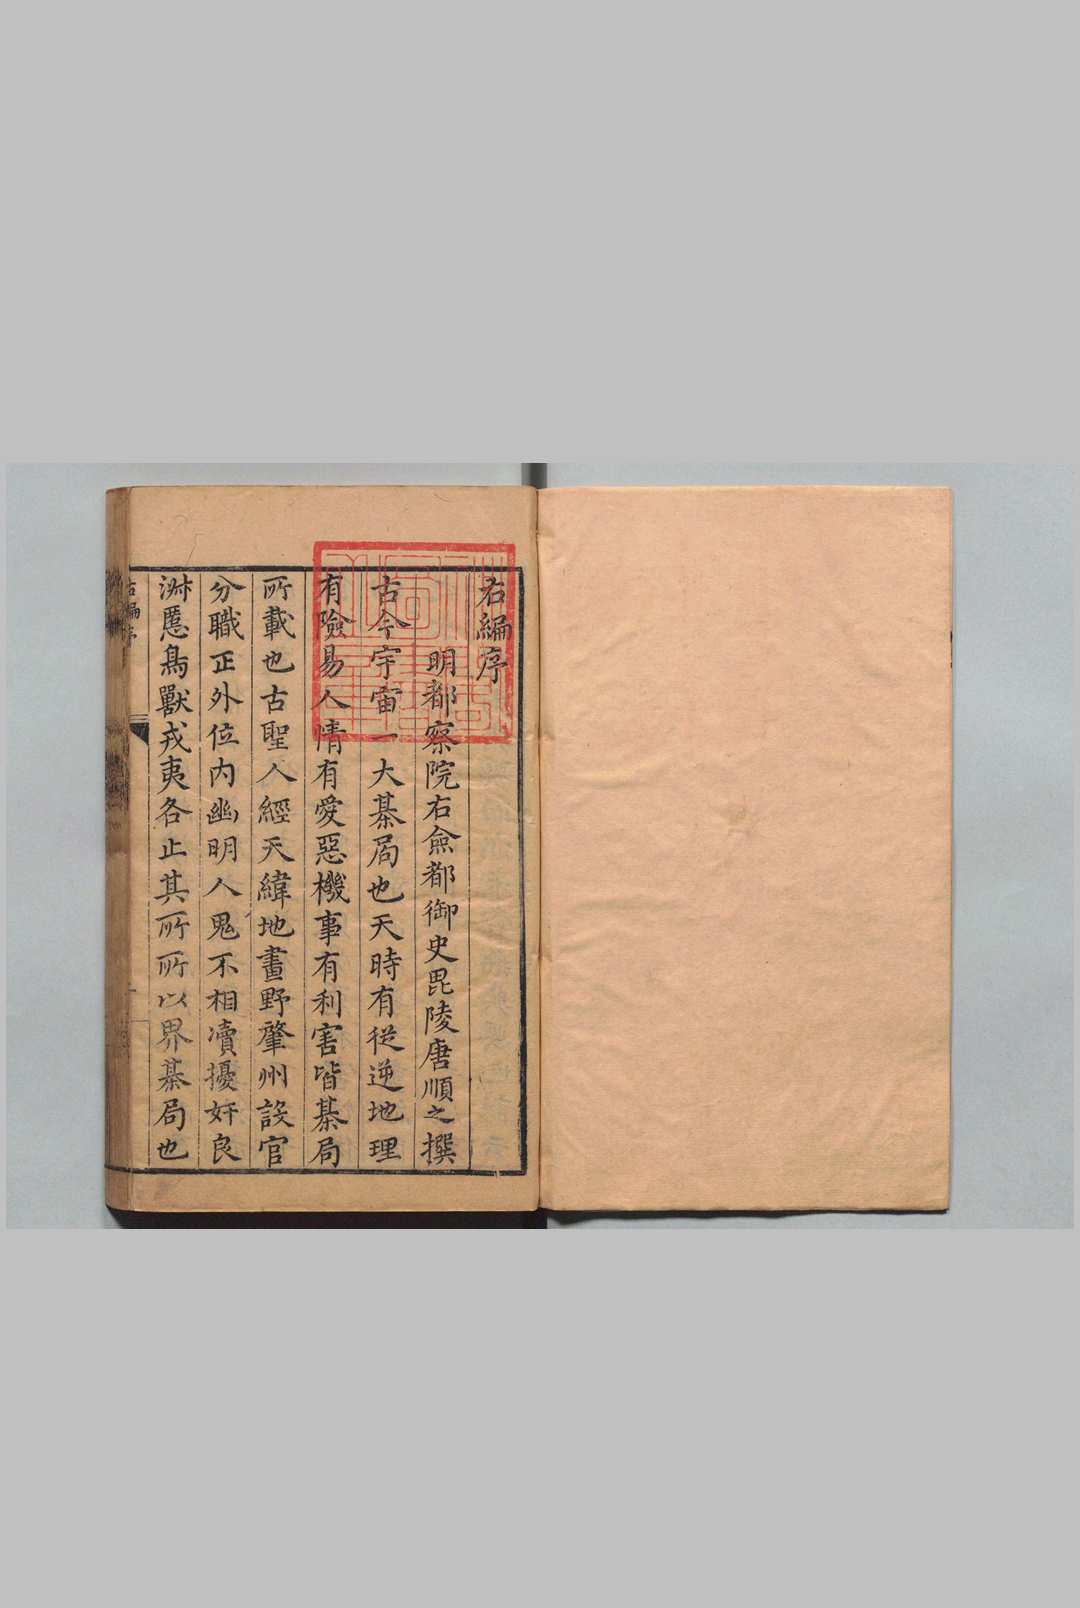 右編序
明都察院右僉都御史毘陵唐順之撰
古今宇宙一大棊局也天時有從逆地理
有險易人情有愛惡機事有利害皆棊局
所載也古聖人經天緯地畫野肇州設官
分職正外位內幽明人鬼不相瀆擾奸良
淑慝鳥獸戎夷各止其所所以界棊局也
右編序